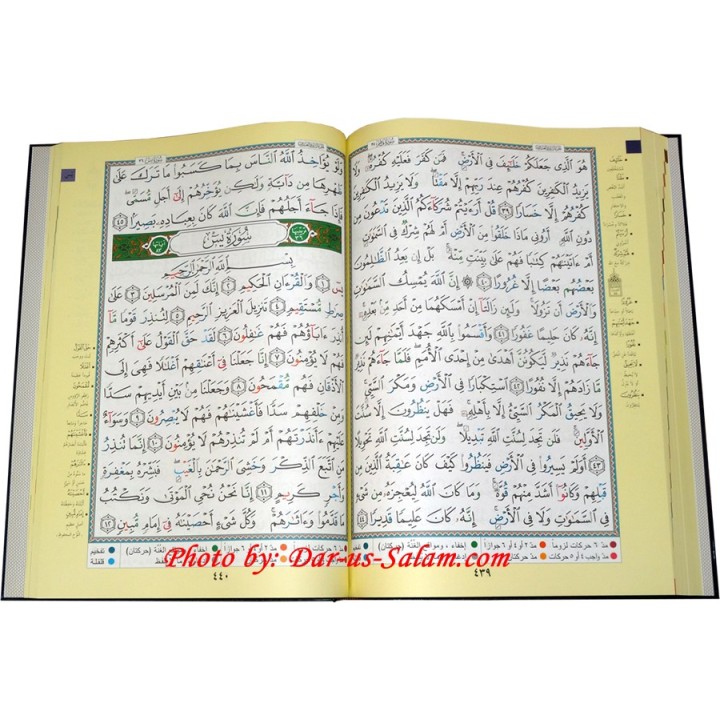 هُوَ ٱلَّذِى جَعَلَكُمْ خَلَـٰٓئِفَ فِى ٱلْأَرْضِ فَمَن كَفَرَ فَعَلَيْهِ كُفْرُهُۥ وَلَا
يَزِيدُ ٱلْكَـٰفِرِينَ كُفْرُهُمْ عِندَ رَبِّهِمْ إِلَّا مَقْتًا وَلَا يَزِيدُ ٱلْكَـٰفِرِينَ
كُفْرُهُمْ إِلَّا خَسَارًا ﴿٣٩﴾ قُلْ أَرَءَيْتُمْ شُرَكَآءَكُمُ ٱلَّذِينَ تَدْعُونَ مِن
دُونِ ٱللَّهِ أَرُونِى مَاذَا خَلَقُوا۟ مِنَ ٱلْأَرْضِ أَمْ لَهُمْ شِرْكٌ فِى ٱلسَّمَـٰوَٰتِ
أَمْ ءَاتَيْنَـٰهُمْ كِتَـٰبًا فَهُمْ عَلَىٰ بَيِّنَتٍ مِّنْهُ بَلْ إِن يَعِدُ ٱلظَّـٰلِمُونَ
بَعْضُهُم بَعْضًا إِلَّا غُرُورًا ﴿٤٠﴾ إِنَّ ٱللَّهَ يُمْسِكُ ٱلسَّمَـٰوَٰتِ
وَٱلْأَرْضَ أَن تَزُولَا وَلَئِن زَالَتَآ إِنْ أَمْسَكَهُمَا مِنْ أَحَدٍ مِّنۢ بَعْدِهِۦٓ
إِنَّهُۥ كَانَ حَلِيمًا غَفُورًا ﴿٤١﴾ وَأَقْسَمُوا۟ بِٱللَّهِ جَهْدَ أَيْمَـٰنِهِمْ لَئِن
جَآءَهُمْ نَذِيرٌ لَّيَكُونُنَّ أَهْدَىٰ مِنْ إِحْدَى ٱلْأُمَمِ فَلَمَّا جَآءَهُمْ نَذِيرٌ
مَّا زَادَهُمْ إِلَّا نُفُورًا ﴿٤٢﴾ ٱسْتِكْبَارًا فِى ٱلْأَرْضِ وَمَكْرَ ٱلسَّيِّئِ
وَلَا يَحِيقُ ٱلْمَكْرُ ٱلسَّيِّئُ إِلَّا بِأَهْلِهِۦ فَهَلْ يَنظُرُونَ إِلَّا سُنَّتَ
ٱلْأَوَّلِينَ فَلَن تَجِدَ لِسُنَّتِ ٱللَّهِ تَبْدِيلًا وَلَن تَجِدَ لِسُنَّتِ ٱللَّهِ تَحْوِيلًا
﴿٤٣﴾ أَوَلَمْ يَسِيرُوا۟ فِى ٱلْأَرْضِ فَيَنظُرُوا۟ كَيْفَ كَانَ عَـٰقِبَةُ ٱلَّذِينَ مِن
قَبْلِهِمْ وَكَانُوٓا۟ أَشَدَّ مِنْهُمْ قُوَّةً وَمَا كَانَ ٱللَّهُ لِيُعْجِزَهُۥ مِن شَىْءٍ
فِى ٱلسَّمَـٰوَٰتِ وَلَا فِى ٱلْأَرْضِ إِنَّهُۥ كَانَ عَلِيمًا قَدِيرًا ﴿٤٤﴾
٤٣٩
وَلَوْ يُؤَاخِذُ ٱللَّهُ ٱلنَّاسَ بِمَا كَسَبُوا۟ مَا تَرَكَ عَلَىٰ
ظَهْرِهَا مِن دَآبَّةٍ وَلَـٰكِن يُؤَخِّرُهُمْ إِلَىٰٓ أَجَلٍ مُّسَمًّى
فَإِذَا جَآءَ أَجَلُهُمْ فَإِنَّ ٱللَّهَ كَانَ بِعِبَادِهِۦ بَصِيرًۢا ﴿٤٥﴾
سُورَةُ يسٓ
بِسْمِ ٱللَّهِ ٱلرَّحْمَـٰنِ ٱلرَّحِيمِ
يسٓ ﴿١﴾ وَٱلْقُرْءَانِ ٱلْحَكِيمِ ﴿٢﴾ إِنَّكَ لَمِنَ ٱلْمُرْسَلِينَ ﴿٣﴾ عَلَىٰ
صِرَٰطٍ مُّسْتَقِيمٍ ﴿٤﴾ تَنزِيلَ ٱلْعَزِيزِ ٱلرَّحِيمِ ﴿٥﴾ لِتُنذِرَ قَوْمًا مَّآ
أُنذِرَ ءَابَآؤُهُمْ فَهُمْ غَـٰفِلُونَ ﴿٦﴾ لَقَدْ حَقَّ ٱلْقَوْلُ عَلَىٰٓ أَكْثَرِهِمْ
فَهُمْ لَا يُؤْمِنُونَ ﴿٧﴾ إِنَّا جَعَلْنَا فِىٓ أَعْنَـٰقِهِمْ أَغْلَـٰلًا فَهِىَ إِلَى
ٱلْأَذْقَانِ فَهُم مُّقْمَحُونَ ﴿٨﴾ وَجَعَلْنَا مِنۢ بَيْنِ أَيْدِيهِمْ سَدًّا
وَمِنْ خَلْفِهِمْ سَدًّا فَأَغْشَيْنَـٰهُمْ فَهُمْ لَا يُبْصِرُونَ ﴿٩﴾ وَسَوَآءٌ
عَلَيْهِمْ ءَأَنذَرْتَهُمْ أَمْ لَمْ تُنذِرْهُمْ لَا يُؤْمِنُونَ ﴿١٠﴾ إِنَّمَا تُنذِرُ
مَنِ ٱتَّبَعَ ٱلذِّكْرَ وَخَشِىَ ٱلرَّحْمَـٰنَ بِٱلْغَيْبِ فَبَشِّرْهُ بِمَغْفِرَةٍ
وَأَجْرٍ كَرِيمٍ ﴿١١﴾ إِنَّا نَحْنُ نُحْىِ ٱلْمَوْتَىٰ وَنَكْتُبُ
مَا قَدَّمُوا۟ وَءَاثَـٰرَهُمْ وَكُلَّ شَىْءٍ أَحْصَيْنَـٰهُ فِىٓ إِمَامٍ مُّبِينٍ ﴿١٢﴾
٤٤٠
Photo by: Dar-us-Salam.com